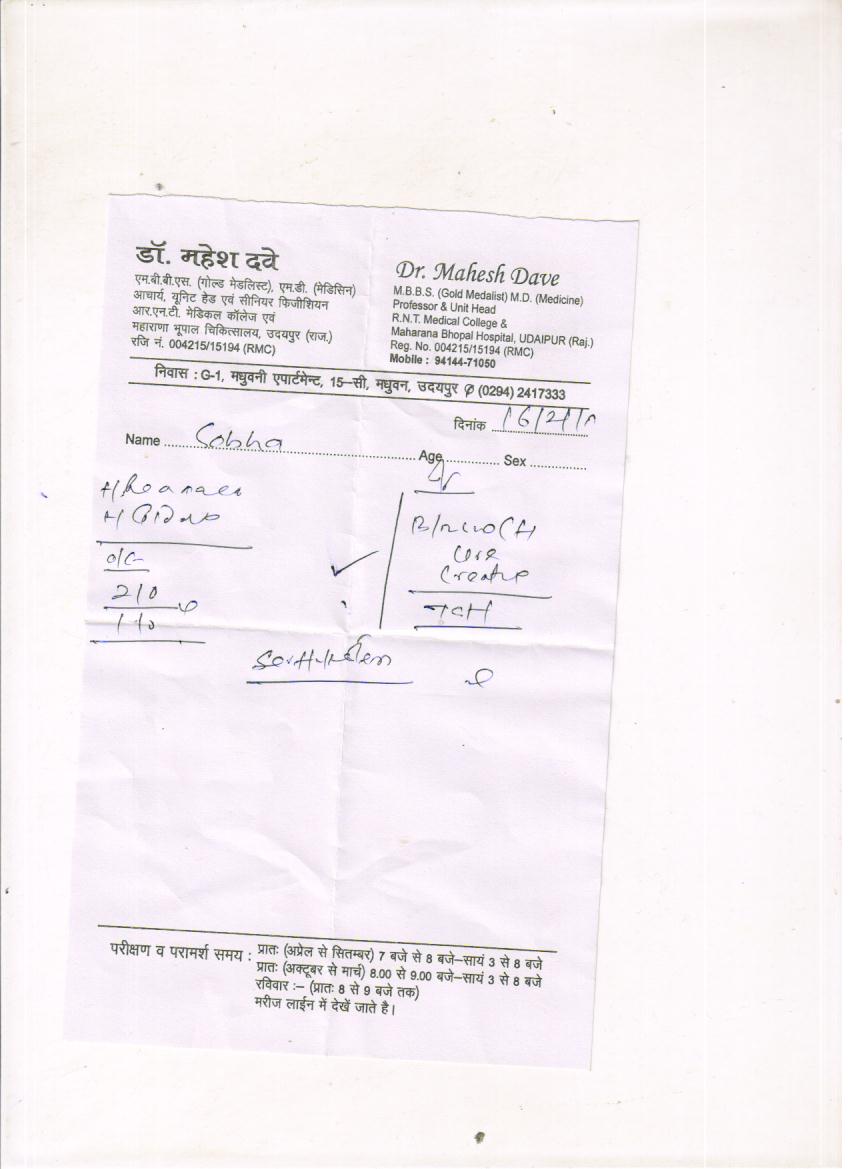 डॉ. महेश दवे
एम.बी.बी.एस. (गोल्ड मेडलिस्ट), एम.डी. (मेडिसिन)
आचार्य, यूनिट हेड एवं सीनियर फिजीशियन
आर.एन.टी. मेडिकल कॉलेज एवं
महाराणा भूपाल चिकित्सालय, उदयपुर (राज.)
रजि नं. 004215/15194 (RMC)
Dr. Mahesh Dave
M.B.B.S. (Gold Medalist) M.D. (Medicine)
Professor & Unit Head
R.N.T. Medical College &
Maharana Bhopal Hospital, UDAIPUR (Raj.)
Reg. No. 004215/15194 (RMC)
Mobile : 94144-71050
निवास : G-1, मधुवनी एपार्टमेन्ट, 15–सी, मधुवन, उदयपुर ✆ (0294) 2417333
दिनांक
Name Sobha Age Sex
O/E
210
110
TSH
परीक्षण व परामर्श समय : प्रातः (अप्रेल से सितम्बर) 7 बजे से 8 बजे–सायं 3 से 8 बजे
प्रातः (अक्टूबर से मार्च) 8.00 से 9.00 बजे–सायं 3 से 8 बजे
रविवार :– (प्रातः 8 से 9 बजे तक)
मरीज लाईन में देखें जाते है।